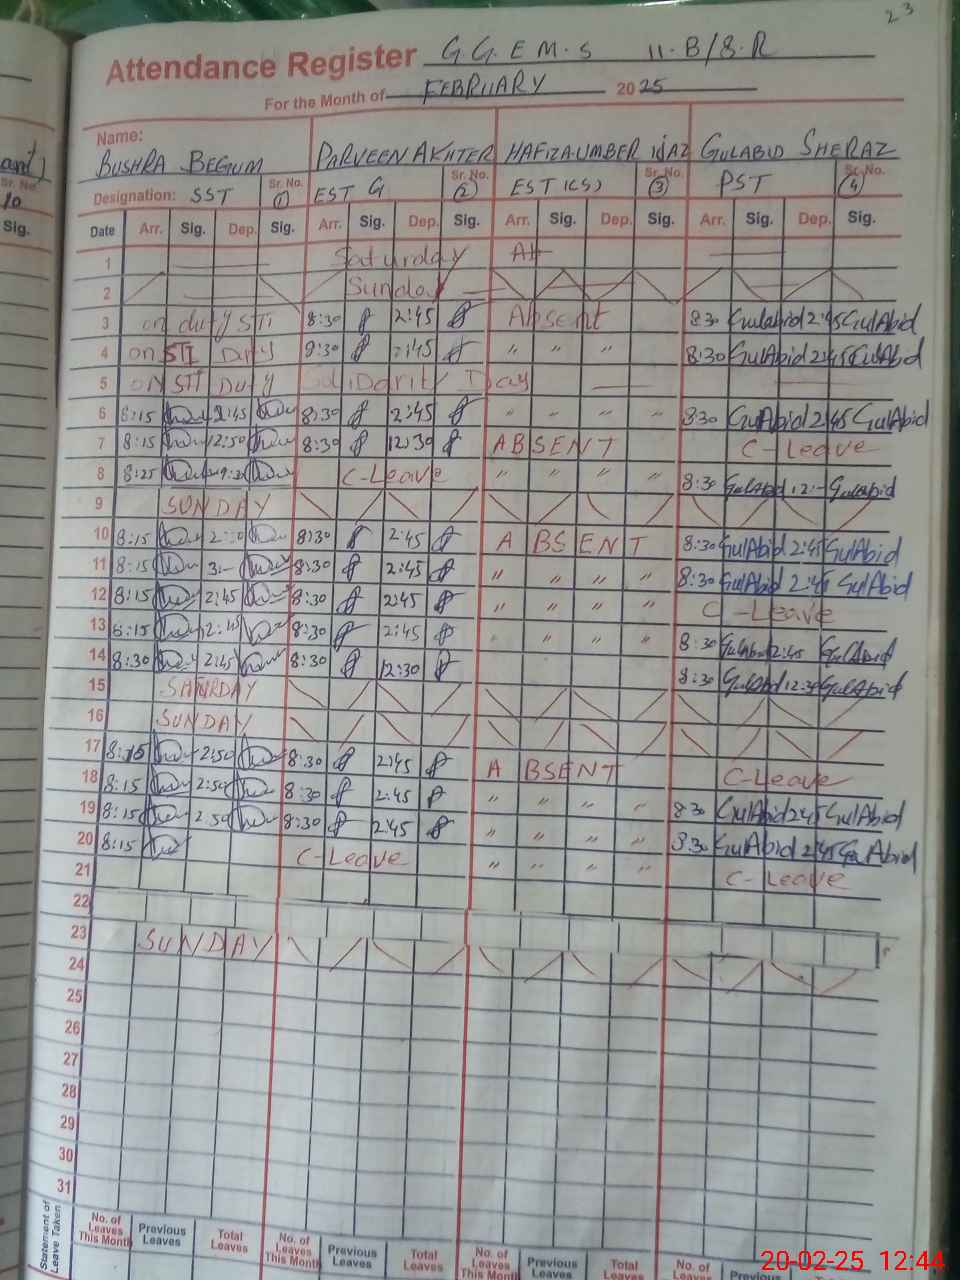 23
Attendance Register G.G.E.M.S 11.B/8.R
For the Month of FEBRUARY 2025
Name:
BUSHRA BEGUM PARVEEN AKHTER HAFIZA UMBER IJAZ GULABID SHERAZ
Designation: SST Sr. No. 1 EST G Sr. No. 2 EST (CS) Sr. No. 3 PST Sr. No. 4
Date Arr. Sig. Dep. Sig. Arr. Sig. Dep. Sig. Arr. Sig. Dep. Sig. Arr. Sig. Dep. Sig.
1 Saturday
2 Sunday
3 on duty STI 8:30 2:45 Absent 8:30 GulAbid 2:45 GulAbid
4 on STI Duty 8:30 2:45 " " " 8:30 GulAbid 2:45 GulAbid
5 on STI Duty Solidarity Day
6 8:15 2:45 8:30 2:45 " " " " 8:30 GulAbid 2:45 GulAbid
7 8:15 12:50 8:30 12:30 ABSENT C-Leave
8 8:25 C-Leave " " " " 8:30 GulAbid 12:- GulAbid
9 SUNDAY
10 8:15 8:30 2:45 ABSENT 8:30 GulAbid 2:45 GulAbid
11 8:15 3:- 8:30 2:45 " " " " 8:30 GulAbid 2:45 GulAbid
12 8:15 2:45 8:30 2:45 " " " " C-Leave
13 8:15 2:45 8:30 2:45 " " " " 8:30 GulAbid 2:45 GulAbid
14 8:30 2:45 8:30 12:30 8:30 GulAbid 12:30 GulAbid
15 SATURDAY
16 SUNDAY
17 8:15 2:50 8:30 2:45 ABSENT C-Leave
18 8:15 2:50 8:30 2:45 " " " " 8:30 GulAbid 2:45 GulAbid
19 8:15 2:50 8:30 2:45 " " " " 8:30 GulAbid 2:45 GulAbid
20 8:15 C-Leave " " " " C-Leave
21
22
23 SUNDAY
24
25
26
27
28
29
30
31
Statement of Leave Taken No. of Leaves This Month Previous Leaves Total Leaves No. of Leaves This Month Previous Leaves Total Leaves No. of Leaves This Month Previous Leaves Total Leaves No. of Leaves Previous
20-02-25 12:44